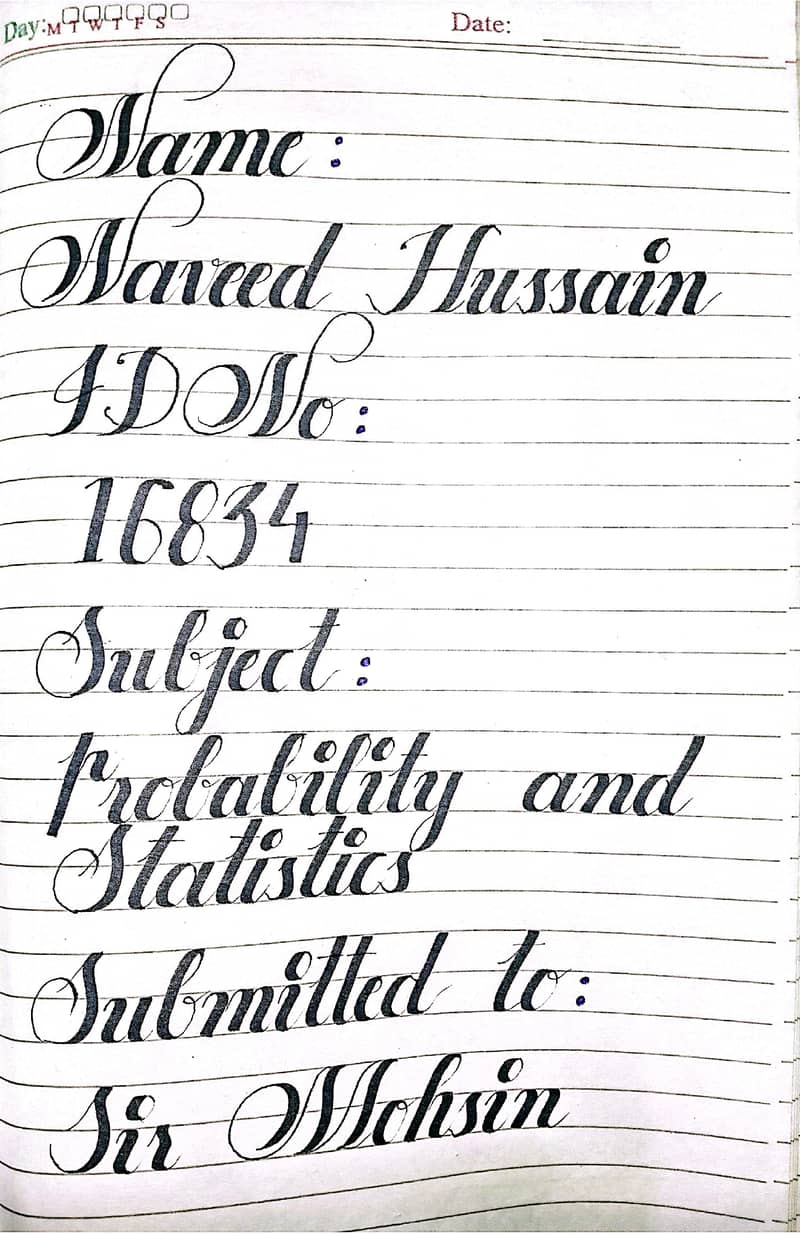 Day: M T W T F S Date:
Name :
Naveed Hussain
ID No :
16834
Subject :
Probability and
Statistics
Submitted to :
Sir Mohsin